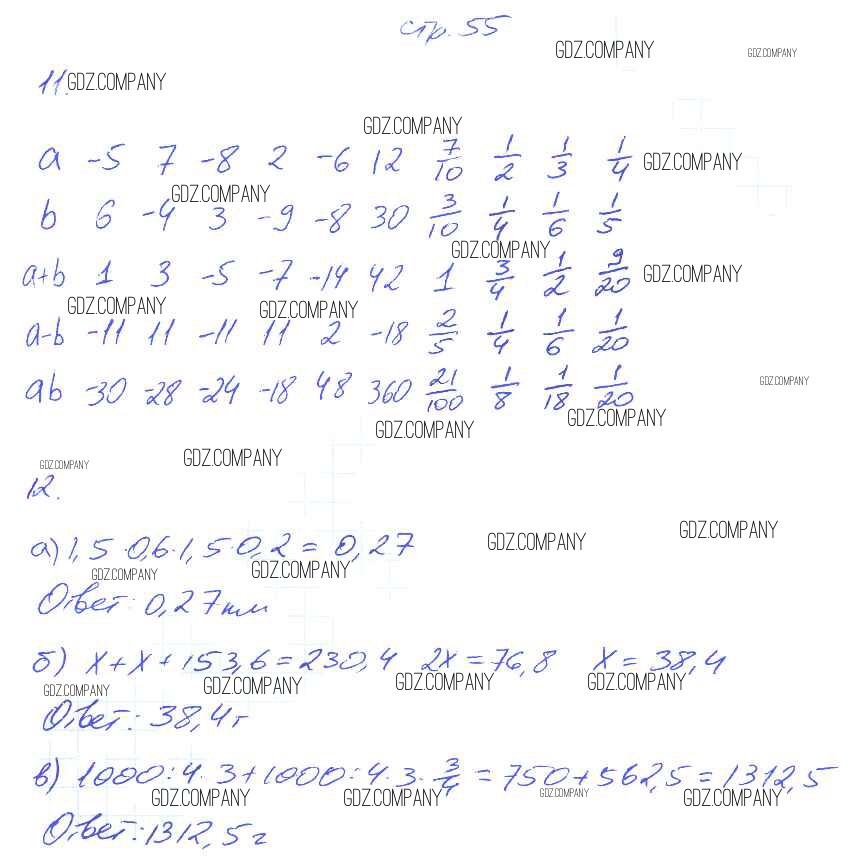 стр. 55
GDZ.COMPANY GDZ.COMPANY
11. GDZ.COMPANY
GDZ.COMPANY
a -5 7 -8 2 -6 12 7/10 1/2 1/3 1/4 GDZ.COMPANY
GDZ.COMPANY
b 6 -4 3 -9 -8 30 3/10 1/4 1/6 1/5
GDZ.COMPANY
a+b 1 3 -5 -7 -14 42 1 3/4 1/2 9/20 GDZ.COMPANY
GDZ.COMPANY GDZ.COMPANY
a-b -11 11 -11 11 2 -18 2/5 1/4 1/6 1/20
ab -30 -28 -24 -18 48 360 21/100 1/8 1/18 1/20 GDZ.COMPANY
GDZ.COMPANY GDZ.COMPANY
GDZ.COMPANY GDZ.COMPANY
12.
GDZ.COMPANY GDZ.COMPANY
а) 1,5·0,6·1,5·0,2 = 0,27
GDZ.COMPANY GDZ.COMPANY
Ответ: 0,27 км
б) x + x + 153,6 = 230,4 2x = 76,8 x = 38,4
GDZ.COMPANY GDZ.COMPANY GDZ.COMPANY GDZ.COMPANY
Ответ: 38,4 г
в) 1000:4·3+1000:4·3·3/4 = 750+562,5 = 1312,5
GDZ.COMPANY GDZ.COMPANY GDZ.COMPANY GDZ.COMPANY
Ответ: 1312,5 г